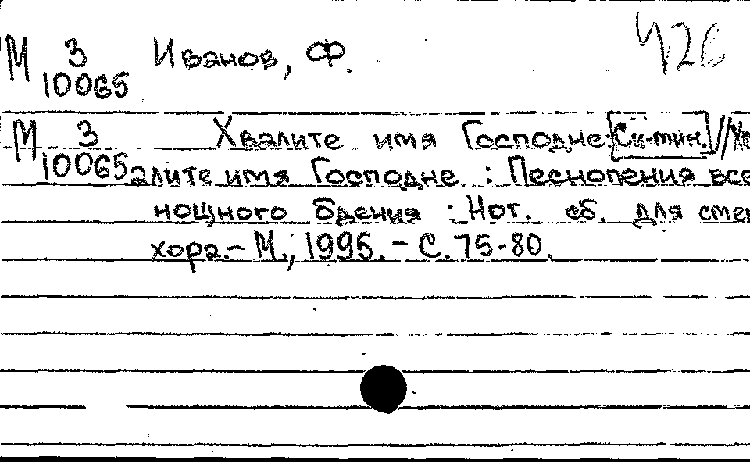 М 3 Иванов, Ф. 426
10065
М 3 Хвалите имя Господне [Си-мин.] // Хв
10065 алите имя Господне : Песнопения все
нощного бдения : Нот. сб. для смеш
хора. - М., 1995. - С. 75-80.